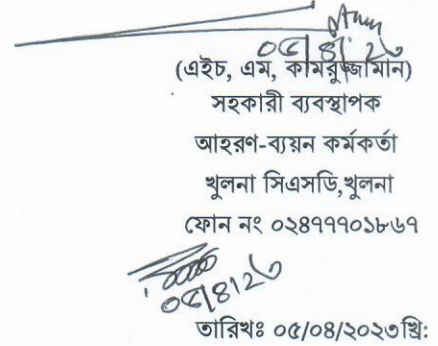 ০৫/৪/২৩
(এইচ, এম, কামরুজ্জামান)
সহকারী ব্যবস্থাপক
আহরণ-ব্যয়ন কর্মকর্তা
খুলনা সিএসডি,খুলনা
ফোন নং ০২৪৭৭৭০১৮৬৭
০৫/৪/২৩
তারিখঃ ০৫/০৪/২০২৩খ্রি: